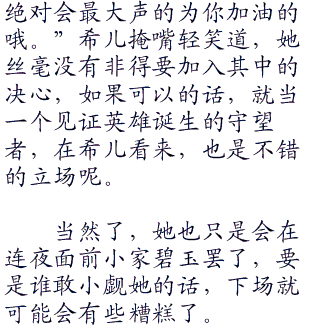 绝对会最大声的为你加油的
哦。”希儿掩嘴轻笑道，她
丝毫没有非得要加入其中的
决心，如果可以的话，就当
一个见证英雄诞生的守望
者，在希儿看来，也是不错
的立场呢。
当然了，她也只是会在
连夜面前小家碧玉罢了，要
是谁敢小觑她的话，下场就
可能会有些糟糕了。